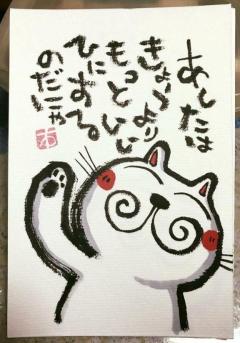 あしたは
きょうより
もっといい
ひにする
のだにゃ